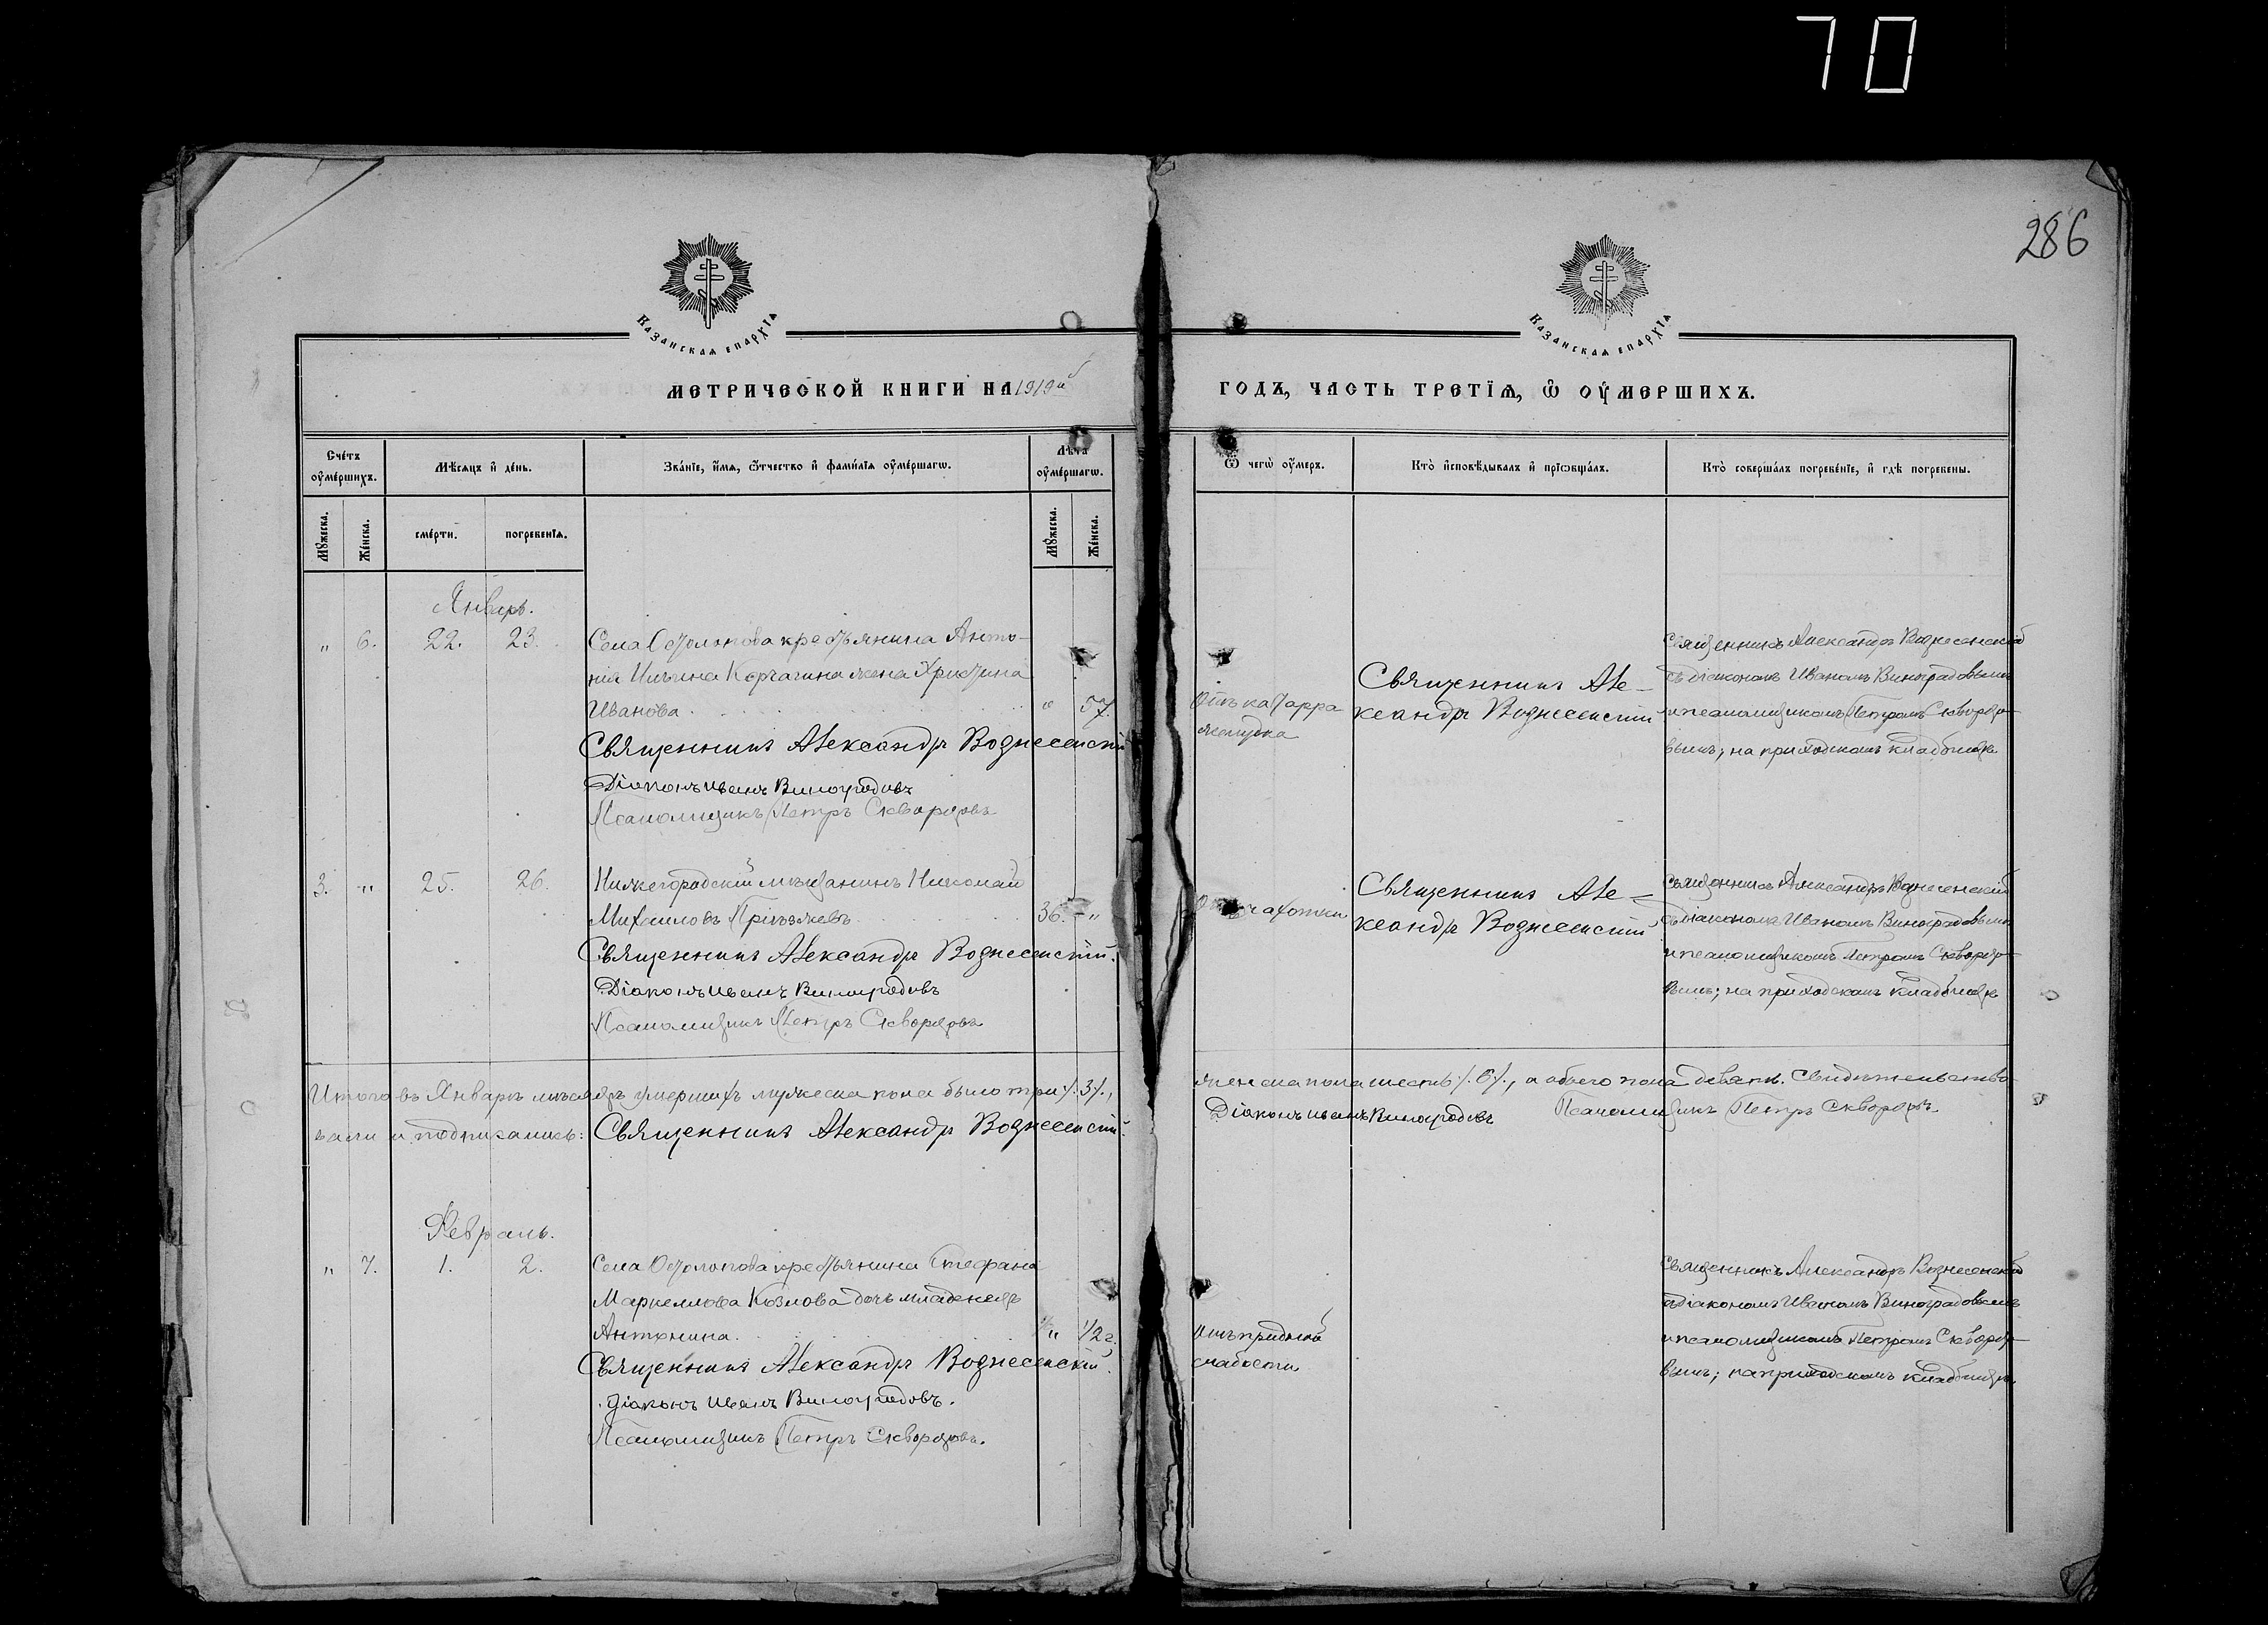 70
286
Казанская епархїѧ
Казанская епархїѧ
МЕТРИЧЕСКОЙ КНИГИ НА 1919й
ГОДЪ, ЧАСТЬ ТРЕТЇѦ, Ѿ ОУМЕРШИХЪ.
Счетъ оумершихъ.
Мѣсяцъ и день.
Званїе, имя, ѿтчество и фамилїя оумершагѡ.
Лѣта оумершагѡ.
Ѿ чегѡ оумеръ.
Кто исповѣдывалъ и прїѡбщалъ.
Кто совершалъ погребенїе, и гдѣ погребены.
Мужеска.
Женска.
смерти.
погребенїя.
Мужеска.
Женска.
Январь.
" 6. 22. 23. Села Остолопова крестьянина Анто-
нія Ильина Корчагина жена Христина
Иванова " 57.
Священникъ Александръ Вознесенскій
Діаконъ Иванъ Виноградовъ
Псаломщикъ Петръ Скворцовъ
Отъ катарра
желудка
Священникъ Але-
ксандръ Вознесенскій
Священникъ Александръ Вознесенскій
съ діакономъ Иваномъ Виноградовымъ
и псаломщикомъ Петромъ Скворцо-
вымъ; на приходскомъ кладбищѣ
3. " 25. 26. Нижегородскій мѣщанинъ Николай
Михаиловъ 36. "
Священникъ Александръ Вознесенскій.
Діаконъ Иванъ Виноградовъ
Псаломщикъ Петръ Скворцовъ
Отъ чахотки
Священникъ Але-
ксандръ Вознесенскій
Священникъ Александръ Вознесенскій
съ діакономъ Иваномъ Виноградовымъ
и псаломщикомъ Петромъ Скворцо-
вымъ; на приходскомъ кладбищѣ
Итого въ Январѣ мѣсяцѣ умершихъ мужеска пола было три /.3./,
женска пола шесть /.6./, а обоего пола девять. Свидѣтельство-
вали и подписались: Священникъ Александръ Вознесенскій.
Діаконъ Иванъ Виноградовъ Псаломщикъ Петръ Скворцовъ.
Февраль.
" 7. 1. 2. Села Остолопова крестьянина Стефана
Маркеллова Козлова дочь младенецъ
Антонина. " 1/2 г.
Священникъ Александръ Вознесенскій.
Діаконъ Иванъ Виноградовъ.
Псаломщикъ Петръ Скворцовъ.
слабости
Священникъ Александръ Вознесенскій
съ діакономъ Иваномъ Виноградовымъ
и псаломщикомъ Петромъ Скворцо-
вымъ; на приходскомъ кладбищѣ.